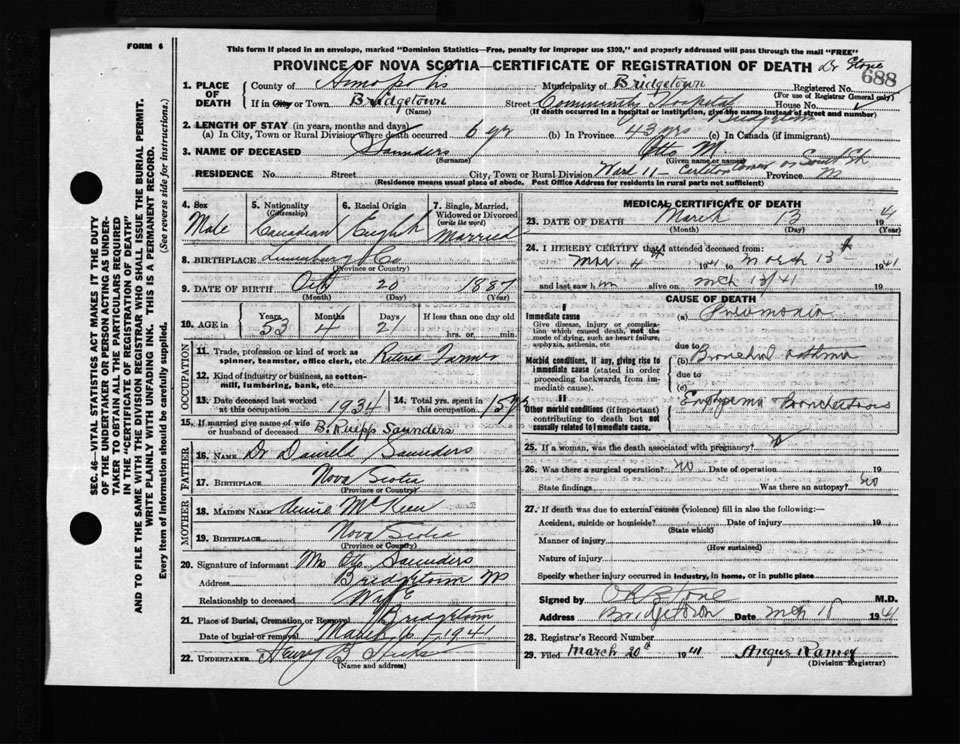 FORM 6
This form if placed in an envelope, marked "Dominion Statistics—Free, penalty for improper use $300," and properly addressed will pass through the mail "FREE"
PROVINCE OF NOVA SCOTIA—CERTIFICATE OF REGISTRATION OF DEATH Dr Stone
688
1. PLACE OF DEATH
County of Annapolis Municipality of Bridgetown Registered No.
(For use of Registrar General only)
If in City or Town Bridgetown Street Community Hospital House No.
(If death occurred in a hospital or institution, give the name instead of street and number)
Bridgetown
2. LENGTH OF STAY (in years, months and days)
(a) In City, Town or Rural Division where death occurred 6 yr (b) In Province 43 yrs (c) In Canada (if immigrant)
3. NAME OF DECEASED Saunders Otto M.
(Surname) (Given name or names)
RESIDENCE No. Street City, Town or Rural Division Ward 11 – Province
(Residence means usual place of abode. Post Office Address for residents in rural parts not sufficient)
4. Sex Male
5. Nationality (Citizenship) Canadian
6. Racial Origin English
7. Single, Married, Widowed or Divorced (write the word) Married
8. BIRTHPLACE Lunenburg Co
(Province or Country)
9. DATE OF BIRTH Oct 20 1887
(Month) (Day) (Year)
10. AGE in Years 53 Months 4 Days 21 If less than one day old
hrs. or min.
OCCUPATION
11. Trade, profession or kind of work as spinner, teamster, office clerk, etc. Retired Farmer
12. Kind of industry or business, as cotton-mill, lumbering, bank, etc.
13. Date deceased last worked at this occupation 1934 14. Total yrs. spent in this occupation 15 yrs
15. If married give name of wife or husband of deceased B. Saunders
FATHER
16. NAME Dr Saunders
17. BIRTHPLACE Nova Scotia
(Province or Country)
MOTHER
18. MAIDEN NAME Annie
19. BIRTHPLACE Nova Scotia
(Province or Country)
20. Signature of informant Mrs Otto Saunders
Address Bridgetown NS
Relationship to deceased Wife
21. Place of Burial, Cremation or Removal Bridgetown
Date of burial or removal March 1941
22. UNDERTAKER Henry B Hicks
(Name and address)
MEDICAL CERTIFICATE OF DEATH
23. DATE OF DEATH March 13 194
(Month) (Day) (Year)
24. I HEREBY CERTIFY that I attended deceased from:
Mar. 4 194 to March 13 1941
and last saw him alive on Mch 13/41 194
CAUSE OF DEATH
I
Immediate cause (a) Pneumonia
Give disease, injury or complication which caused death, not the mode of dying, such as heart failure, asphyxia, asthenia, etc
due to
Morbid conditions, if any, giving rise to immediate cause (stated in order proceeding backwards from immediate cause).
(b) Bronchial Asthma
due to
(c)
II
Other morbid conditions (if important) contributing to death but not causally related to immediate cause.
25. If a woman, was the death associated with pregnancy?
26. Was there a surgical operation? no Date of operation 19
State findings Was there an autopsy? no
27. If death was due to external causes (violence) fill in also the following:—
Accident, suicide or homicide? Date of injury 194
(State which)
Manner of injury
(How sustained)
Nature of injury
Specify whether injury occurred in industry, in home, or in public place
Signed by Stone M.D.
Address Bridgetown Date Mch 1941
28. Registrar's Record Number
29. Filed March 20th 1941 Angus Ramey
(Division Registrar)
SEC. 46—VITAL STATISTICS ACT MAKES IT THE DUTY
OF THE UNDERTAKER OR PERSON ACTING AS UNDER-
TAKER TO OBTAIN ALL THE PARTICULARS REQUIRED
IN THE "CERTIFICATE OF REGISTRATION OF DEATH"
AND TO FILE THE SAME WITH THE DIVISION REGISTRAR WHO SHALL ISSUE THE BURIAL PERMIT.
WRITE PLAINLY WITH UNFADING INK. THIS IS A PERMANENT RECORD.
Every item of Information should be carefully supplied. (See reverse side for instructions.)